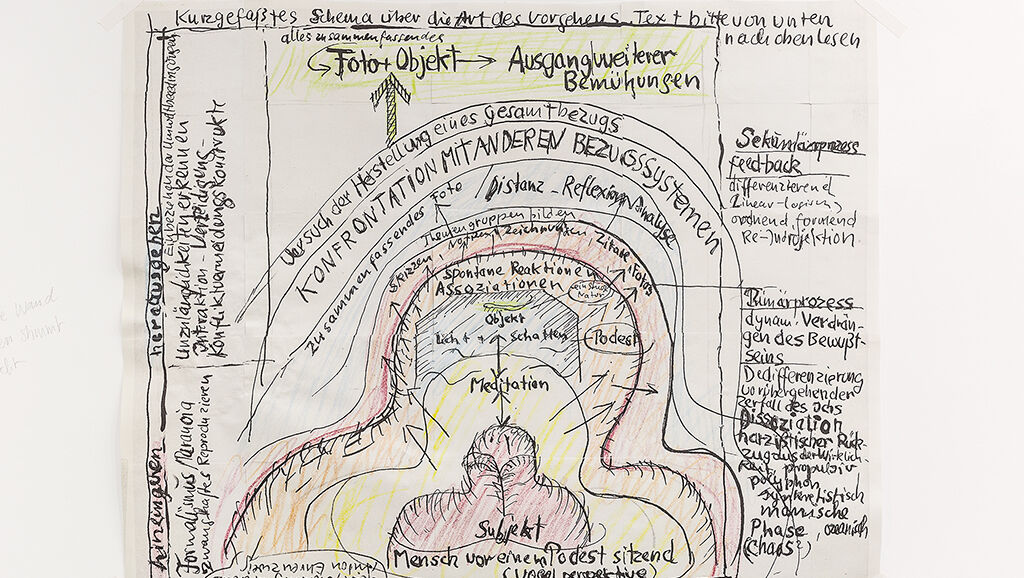 Kurzgefaßtes Schema über die Art des Vorgehens Text bitte von unten
nach oben lesen
alles zusammenfassendes
Foto + Objekt → Ausgang weiterer
Bemühungen
Versuch der Herstellung eines Gesamtbezugs
KONFRONTATION MIT ANDEREN BEZUGSSYSTEMEN
Distanz - Reflexion, Analyse
zusammenfassendes Foto
Themengruppen bilden
Skizzen, Notizen, Zeichnungen Zitate, Fotos
Spontane Reaktionen
Assoziationen
ein Stück
Natur
Objekt
Licht + Schatten
Podest
Meditation
Subjekt
Mensch vor einem Podest sitzend
(Vogelperspektive)
herausgehen
Einbeziehen der Umweltbedingungen
Unzulänglichkeiten erkennen
Intraktion - Verteidigung -
Konfliktvermeidungskonstrukte
hineingehen
Formalismus, Paranoia
zwanghaftes Reproduzieren
Anton Ehrenzweig
Sekundärprozess
feed-back
differenzierend
Linear-logisch,
ordnend, formend
Re-Introjektion.
Primärprozess
dynam. Verdrän-
gen des Bewußt-
seins
Dedifferenzierung
vorübergehender
Zerfall des Ichs
Dissoziation
narzistischer Rück-
zug aus der Wirklich-
keit, propulsiv
polyphon
synkretistisch
manische
Phase, ozeanisch
(Chaos?)
Wand